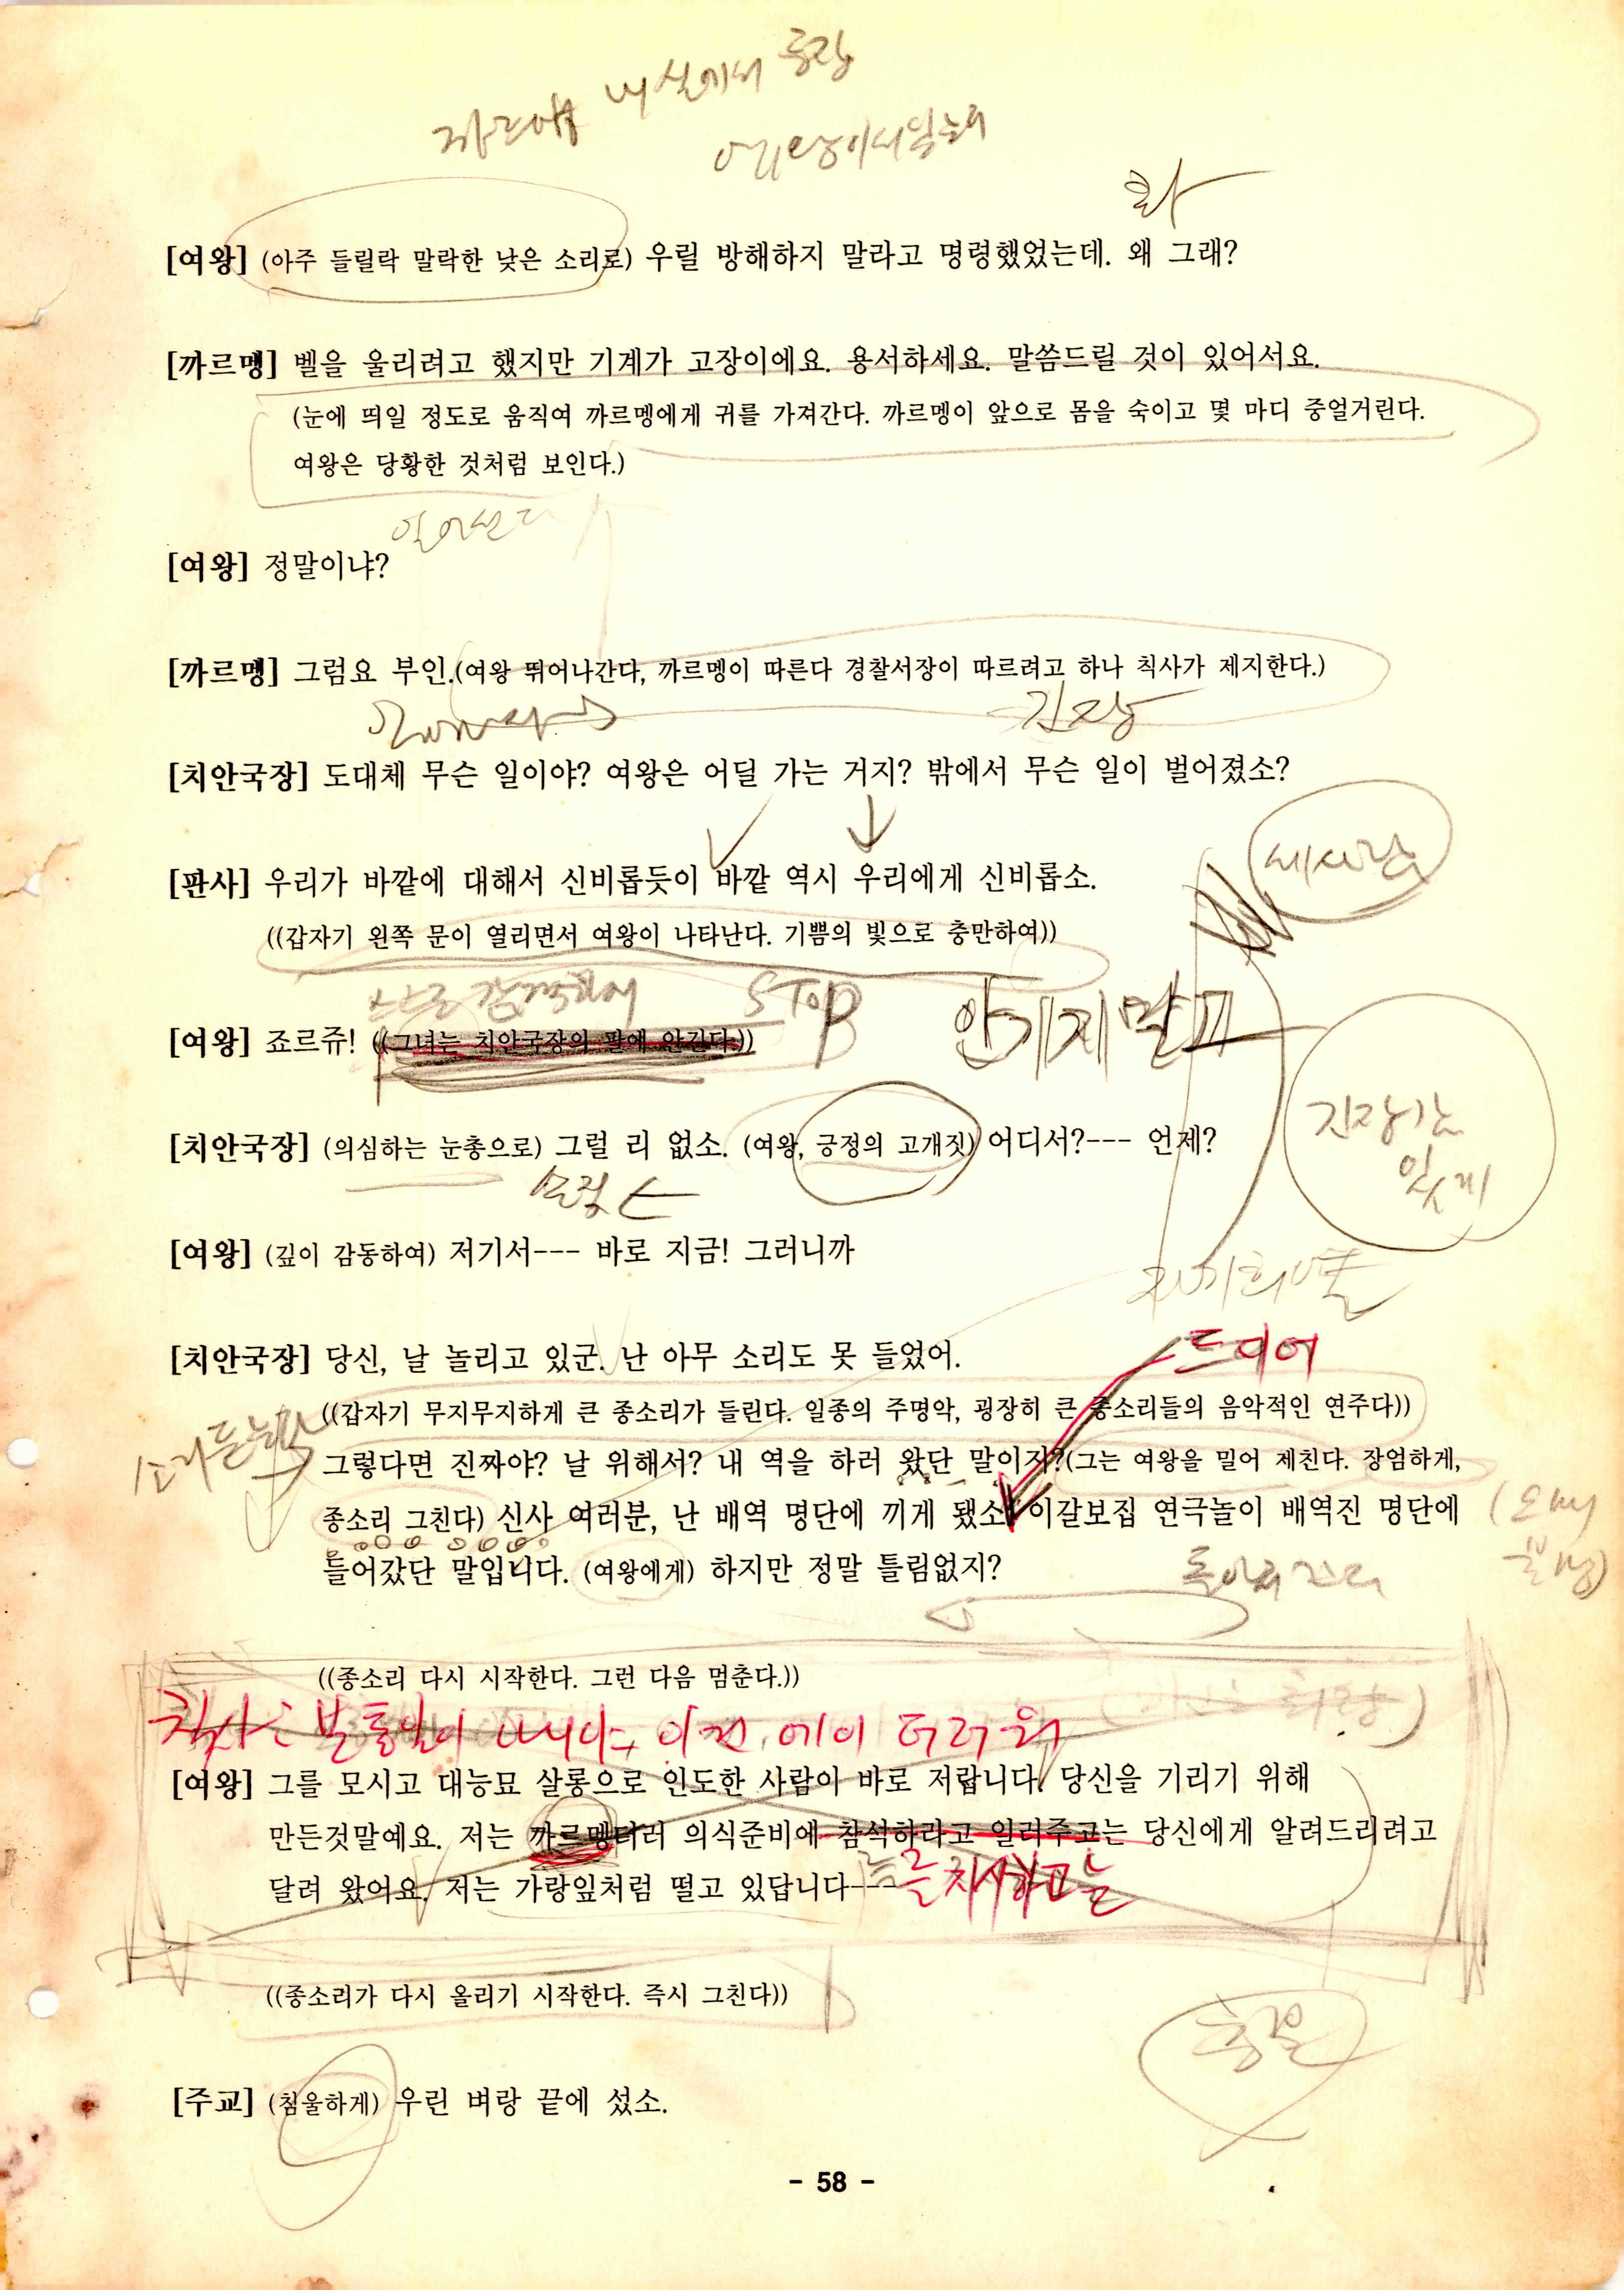 내실에서 등장
[여왕] (아주 들릴락 말락한 낮은 소리로) 우릴 방해하지 말라고 명령했었는데. 왜 그래?
[까르멩] 벨을 울리려고 했지만 기계가 고장이에요. 용서하세요. 말씀드릴 것이 있어서요.
(눈에 띄일 정도로 움직여 까르멩에게 귀를 가져간다. 까르멩이 앞으로 몸을 숙이고 몇 마디 중얼거린다.
여왕은 당황한 것처럼 보인다.)
일어선다
[여왕] 정말이냐?
[까르멩] 그럼요 부인.(여왕 뛰어나간다, 까르멩이 따른다 경찰서장이 따르려고 하나 칙사가 제지한다.)
긴장
[치안국장] 도대체 무슨 일이야? 여왕은 어딜 가는 거지? 밖에서 무슨 일이 벌어졌소?
세사람
[판사] 우리가 바깥에 대해서 신비롭듯이 바깥 역시 우리에게 신비롭소.
((갑자기 왼쪽 문이 열리면서 여왕이 나타난다. 기쁨의 빛으로 충만하여))
STOP
안기지 말고
[여왕] 죠르쥬! ((그녀는 치안국장의 팔에 안긴다.))
긴장감
있게
[치안국장] (의심하는 눈총으로) 그럴 리 없소. (여왕, 긍정의 고개짓) 어디서?--- 언제?
[여왕] (깊이 감동하여) 저기서--- 바로 지금! 그러니까
드디어
[치안국장] 당신, 날 놀리고 있군. 난 아무 소리도 못 들었어.
((갑자기 무지무지하게 큰 종소리가 들린다. 일종의 주명악, 굉장히 큰 종소리들의 음악적인 연주다))
그렇다면 진짜야? 날 위해서? 내 역을 하러 왔단 말이지?(그는 여왕을 밀어 제친다. 장엄하게,
종소리 그친다) 신사 여러분, 난 배역 명단에 끼게 됐소! 이갈보집 연극놀이 배역진 명단에
들어갔단 말입니다. (여왕에게) 하지만 정말 틀림없지?
((종소리 다시 시작한다. 그런 다음 멈춘다.))
[여왕] 그를 모시고 대능묘 살롱으로 인도한 사람이 바로 저랍니다. 당신을 기리기 위해
만든것말예요. 저는 까르멩더러 의식준비에 참석하라고 일러주고는 당신에게 알려드리려고
달려 왔어요. 저는 가랑잎처럼 떨고 있답니다---
((종소리가 다시 울리기 시작한다. 즉시 그친다))
[주교] (침울하게) 우린 벼랑 끝에 섰소.
- 58 -